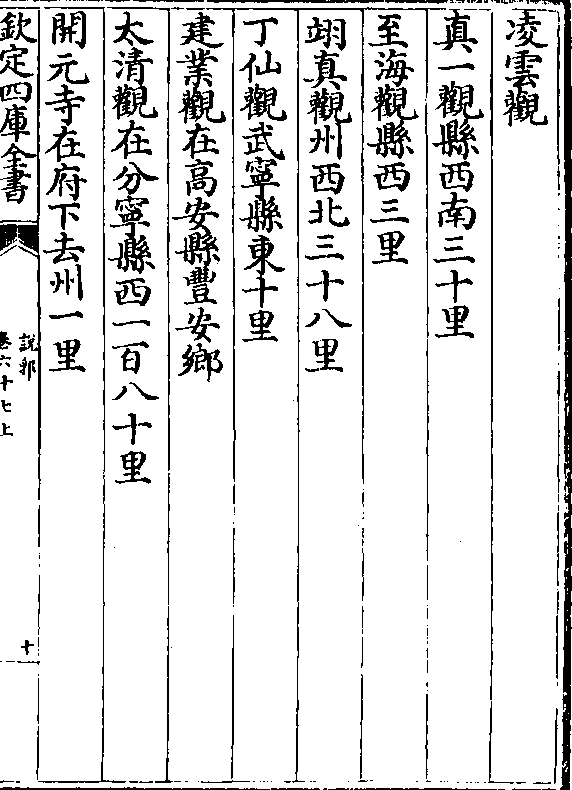 凌雲觀
真一觀縣西南三十里
至海觀縣西三里
翊真觀州西北三十八里
丁仙觀武寧縣東十里
建業觀在高安縣豐安鄉
太清觀在分寧縣西一百八十里
開元寺在府下去州一里
欽定四庫全書
說郛
卷六十七上
十